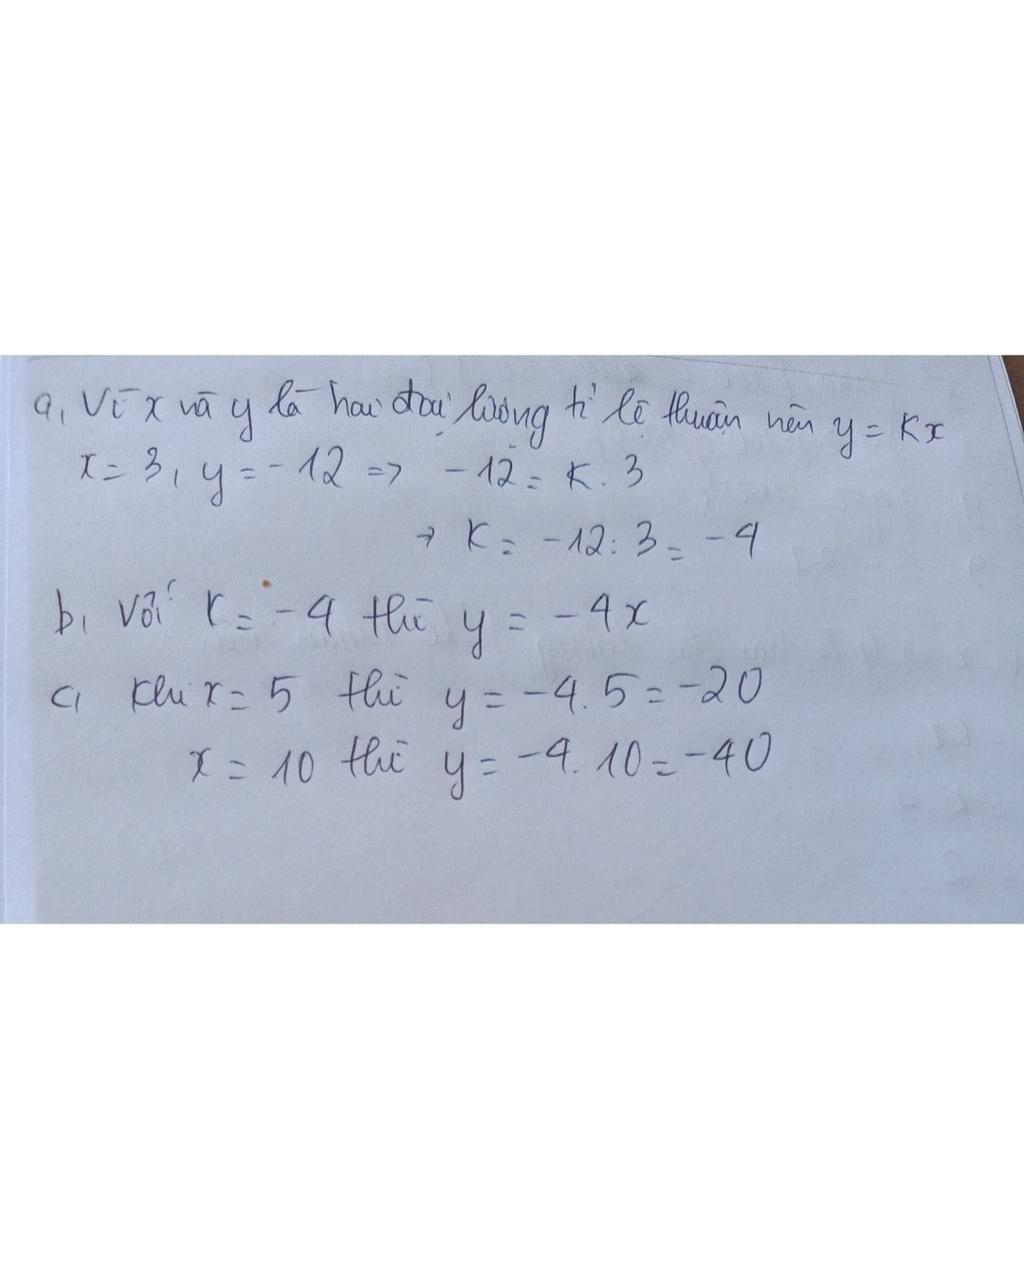 a, Vì x và y là hai đại lượng tỉ lệ thuận nên y = Kx
x = 3, y = -12 => -12 = K. 3
→ K = -12: 3 = -4
b, Với K = -4 thì y = -4x
c, Khi x = 5 thì y = -4. 5 = -20
x = 10 thì y = -4. 10 = -40